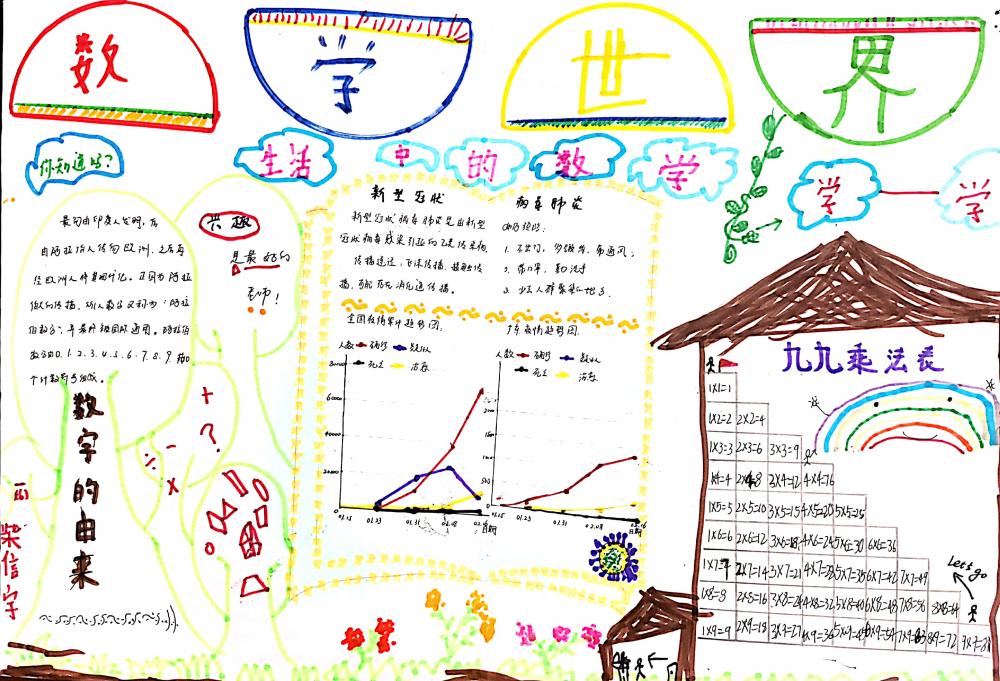 数 学 世 界
你知道吗?
生活 中 的 数 学
学 学
最初由印度人发明,后
由阿拉伯人传向欧洲,之后再
经欧洲人将其现代化。正因为阿拉
伯人的传播,所以数字又称为:"阿拉
伯数字",是最后被国际通用。阿拉伯
数字由0.1.2.3.4.5.6.7.8.9.共10
个计数符号组成。
兴趣
是最好的
老师!
数字的由来
+
?
-
÷
×
柴信宇
新型冠状 病毒肺炎
新型冠状病毒肺炎是由新型
冠状病毒感染引起的飞沫传染病,
传播途径,飞沫传播、接触传
播,可能存在消化道传播。
1. 不出门,多锻炼,常通风;
2. 带口罩,勤洗手
3. 少去人群聚集的地方.
全国疫情累计趋势图.
广东疫情趋势图.
人数 确诊 疑似
死亡 治愈
80000
60000
40000
20000
01.15 01.23 01.31 02.08 02.16
日期
人数 确诊 疑似
死亡 治愈
01.15 01.23 01.31 02.08 02.16
日期
九九乘法表
1×1=1
1×2=2 2×2=4
1×3=3 2×3=6 3×3=9
1×4=4 2×4=8 3×4=12 4×4=16
1×5=5 2×5=10 3×5=15 4×5=20 5×5=25
1×6=6 2×6=12 3×6=18 4×6=24 5×6=30 6×6=36
1×7=7 2×7=14 3×7=21 4×7=28 5×7=35 6×7=42 7×7=49
1×8=8 2×8=16 3×8=24 4×8=32 5×8=40 6×8=48 7×8=56 8×8=64
1×9=9 2×9=18 3×9=27 4×9=36 5×9=45 6×9=54 7×9=63 8×9=72 9×9=81
Let's go